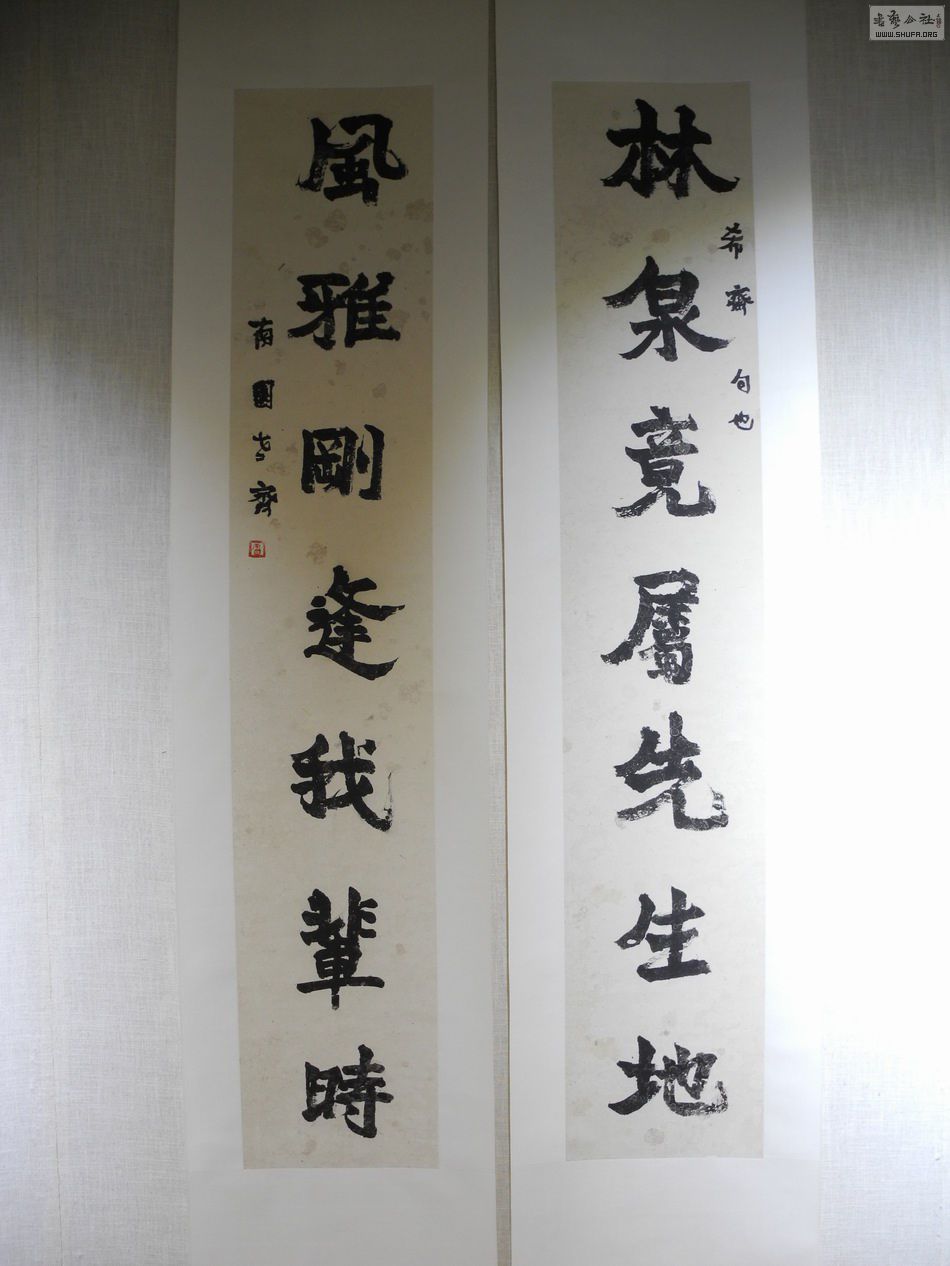 林泉竟屬先生地
希齋句也
風雅剛逢我輩時
南園老齋
書藝公社
WWW.SHUFA.ORG